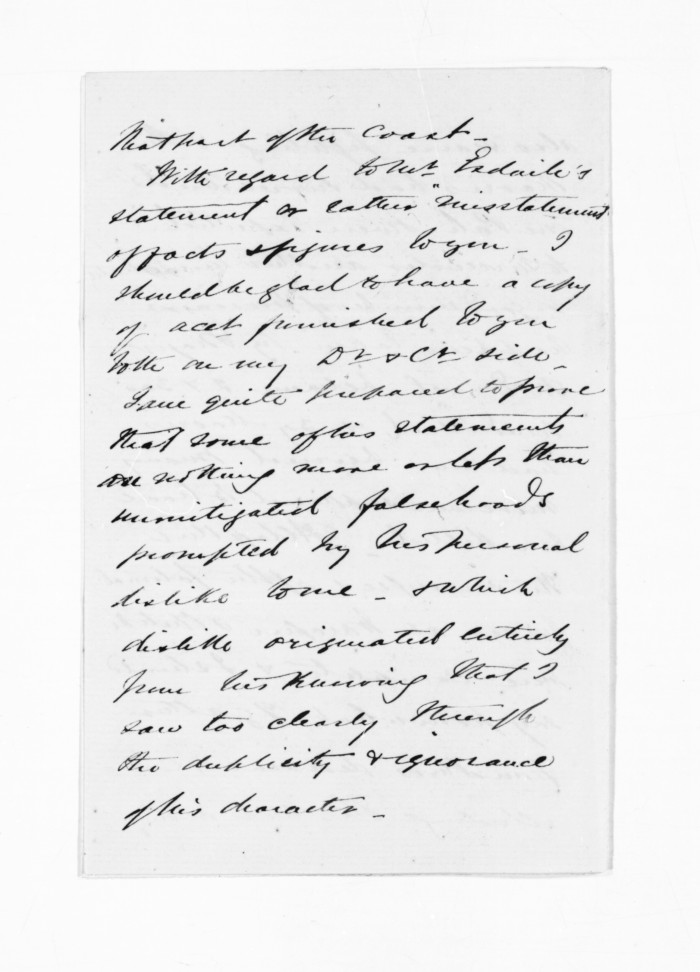 that part of the Coast –
With regard to Mr Esdaile's
statement or rather "misstatement"
of facts & figures to you – I
should be glad to have a copy
of acct furnished to you
both on my Dr & Cr side –
I am quite prepared to prove
that some of his statements
are nothing more or less than
unmitigated falsehoods
prompted by his personal
dislike to me – & which
dislike originated entirely
from his knowing that I
saw too clearly through
the duplicity & ignorance
of his character –